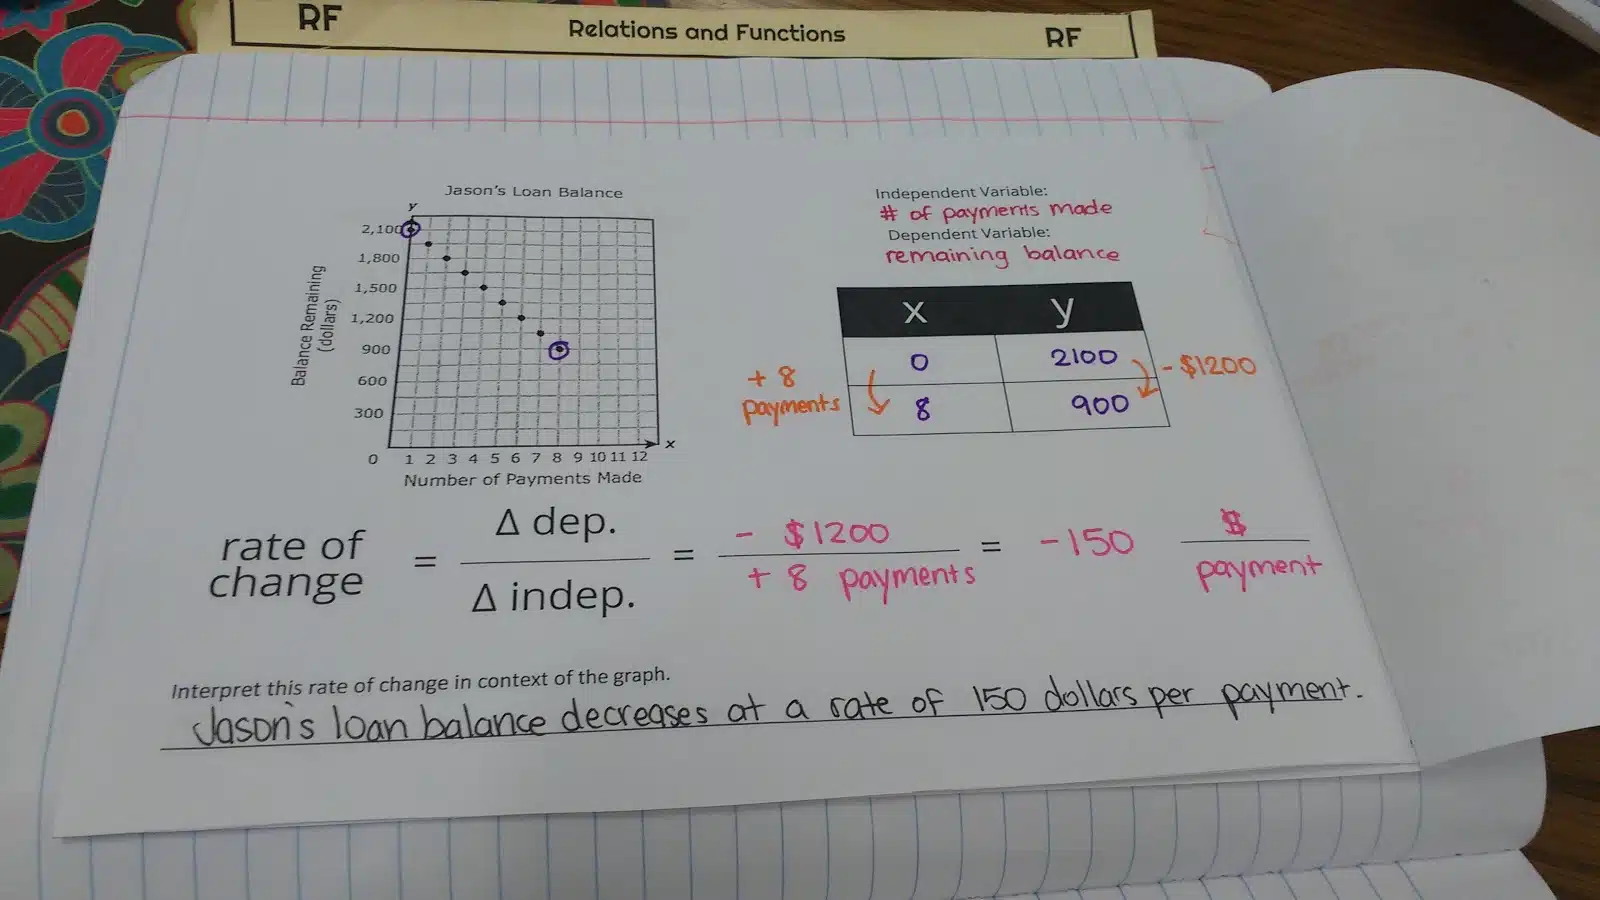 RF Relations and Functions RF
Jason's Loan Balance
y
2,100
1,800
1,500
1,200
900
600
300
0 1 2 3 4 5 6 7 8 9 10 11 12 x
Balance Remaining
(dollars)
Number of Payments Made
Independent Variable:
# of payments made
Dependent Variable:
remaining balance
x y
0 2100
8 900
+ 8
payments
- $1200
rate of
change
= Δ dep.
Δ indep.
= - $1200
+ 8 payments
= -150 $
payment
Interpret this rate of change in context of the graph.
Jason's loan balance decreases at a rate of 150 dollars per payment.